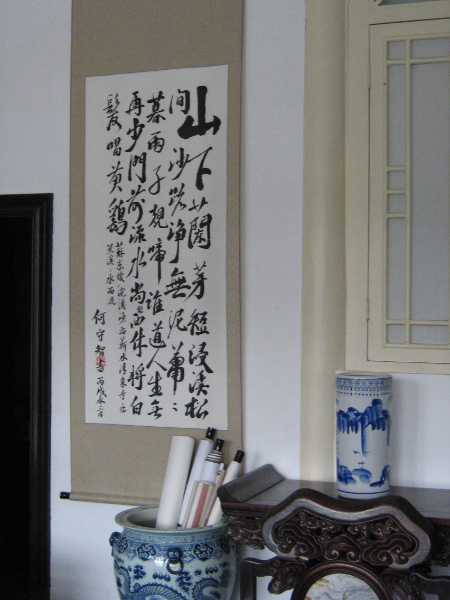 山下蘭芽短浸溪松
間沙路淨無泥蕭〻
暮雨子規啼誰道人生無
再少門前流水尚能西休將白
髮唱黃鷄
蘇東坡浣溪沙遊蘄水清泉寺臨
蘭溪〻水西流
何守智書丙戌